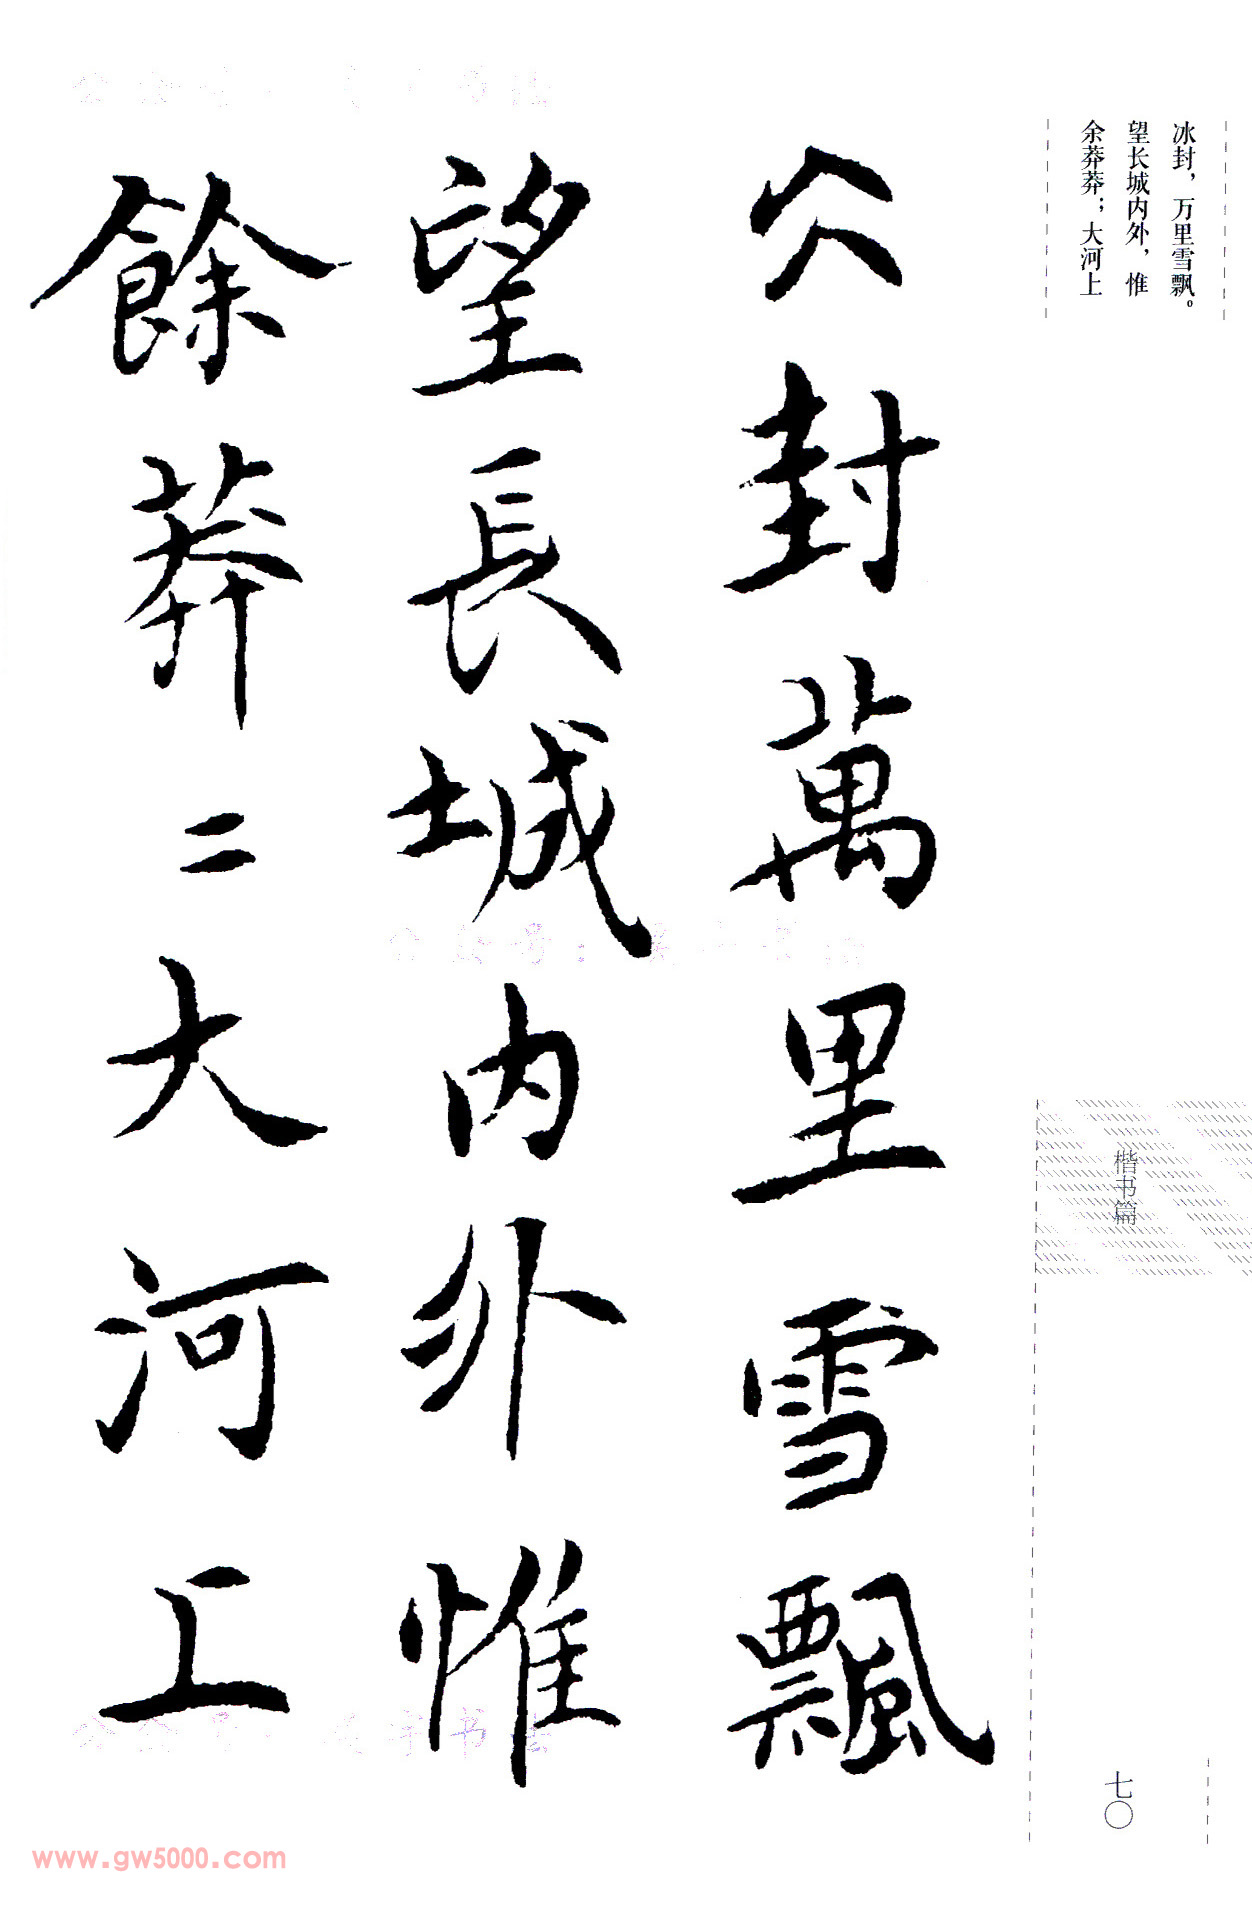 冰封，万里雪飘。
望长城内外，惟
余莽莽；大河上
楷书篇
七〇
仌封萬里雪飄
望長城内外惟
餘莽二大河上
www.gw5000.com